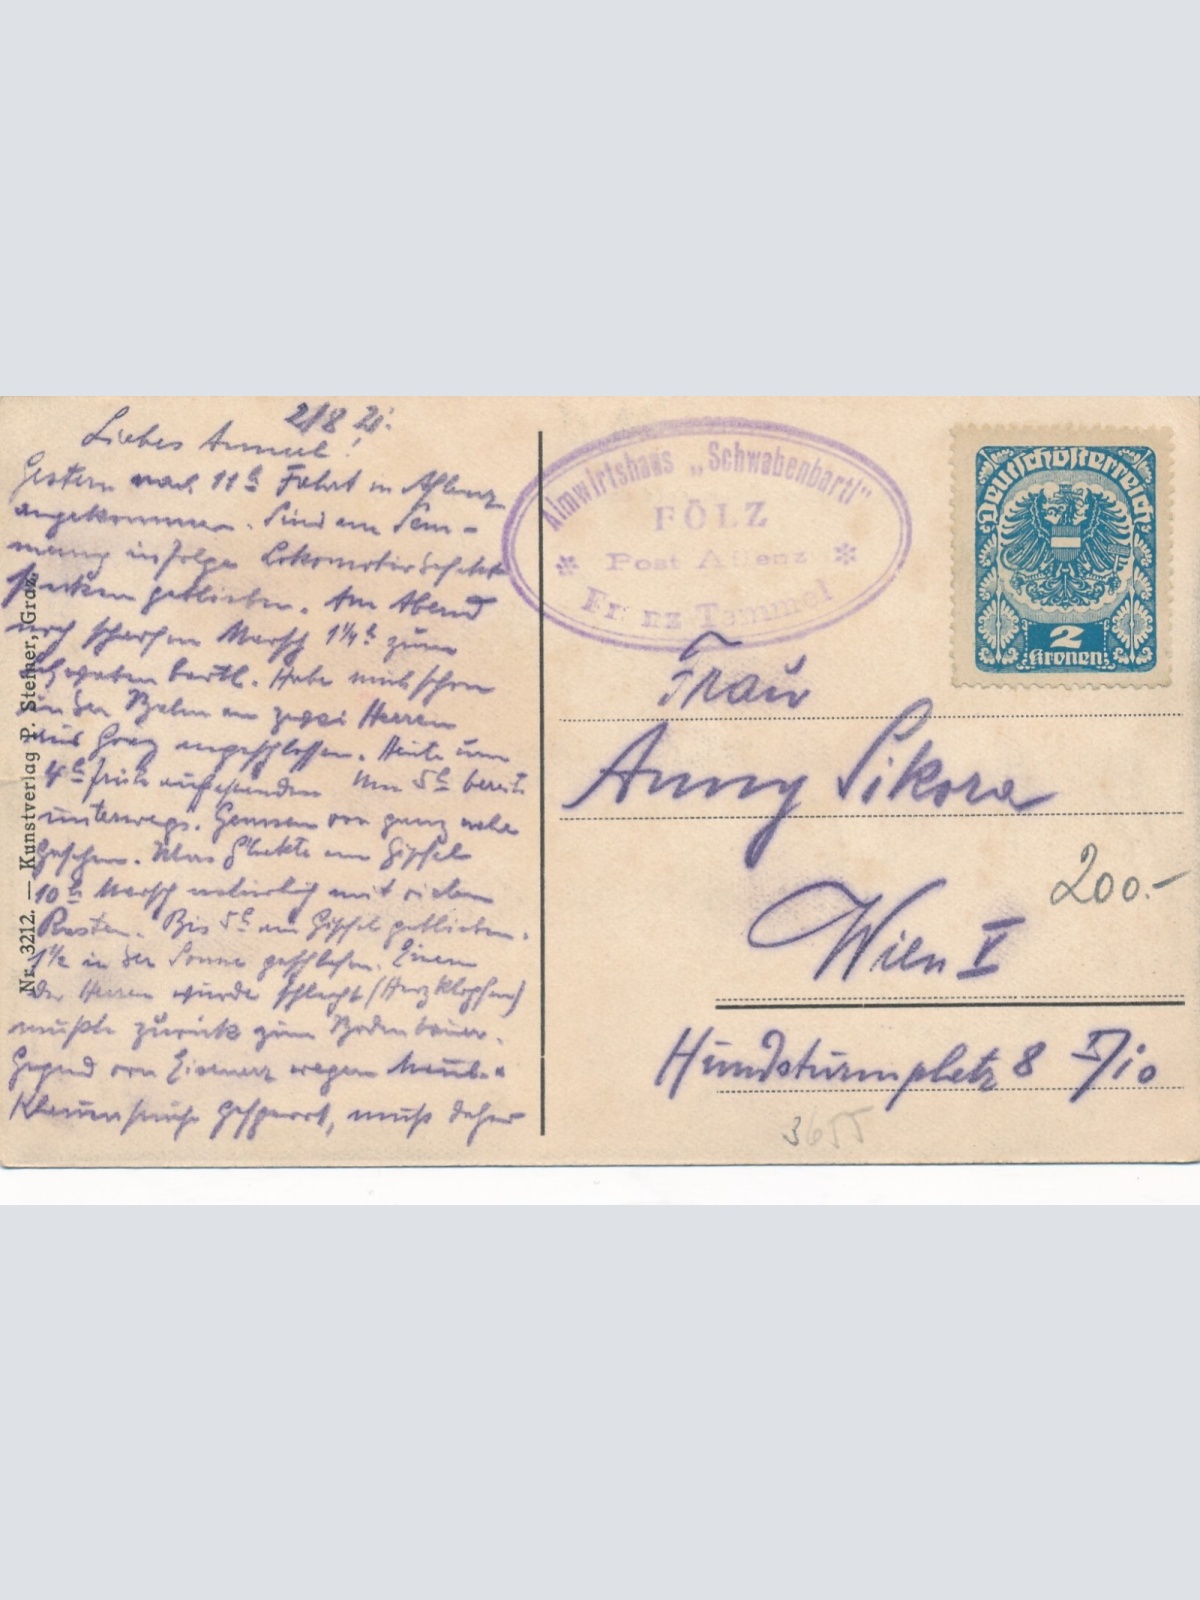 2/8 21.
Liebes Annerl!
Gestern nach 11 h Fahrt in Aflenz
angekommen. Sind am Sem-
mering infolge Lokomotivdefekt
stecken geblieben. Am Abend
noch scharfen Marsch 1¼ h zum
Schwabenbartl. Habe mich schon
in der Bahn an zwei Herren
aus Graz angeschlossen. Heute um
4 h früh aufgestanden Um 5 h bereits
unterwegs. Gemsen von ganz nahe
gesehen. Gipfel
10 h Marsch natürlich mit vielen
Rasten. Bis 5 h am Gipfel geblieben.
1½ in der Sonne geschlafen. Einem
der Herren wurde schlecht (Herzklopfen)
mußte zurück zum Bodenbauer.
Gegend von Eisenerz wegen Maul- u
Klauenseuche gesperrt, muß daher
Nr. 3212. — Kunstverlag P. Steiner, Graz.
Almwirtshaus „Schwabenbartl"
FÖLZ
Post Aflenz
Franz Temmel
Deutschösterreich
2
Kronen
Frau
Anny Sikora
200.-
Wien V
Hundsturmplatz 8 I/10
3655